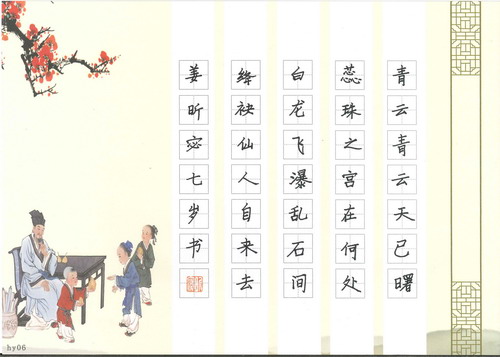 青云青云天已曙
蕊珠之宫在何处
白龙飞瀑乱石间
绛袂仙人自来去
姜昕宓七岁书
hy06